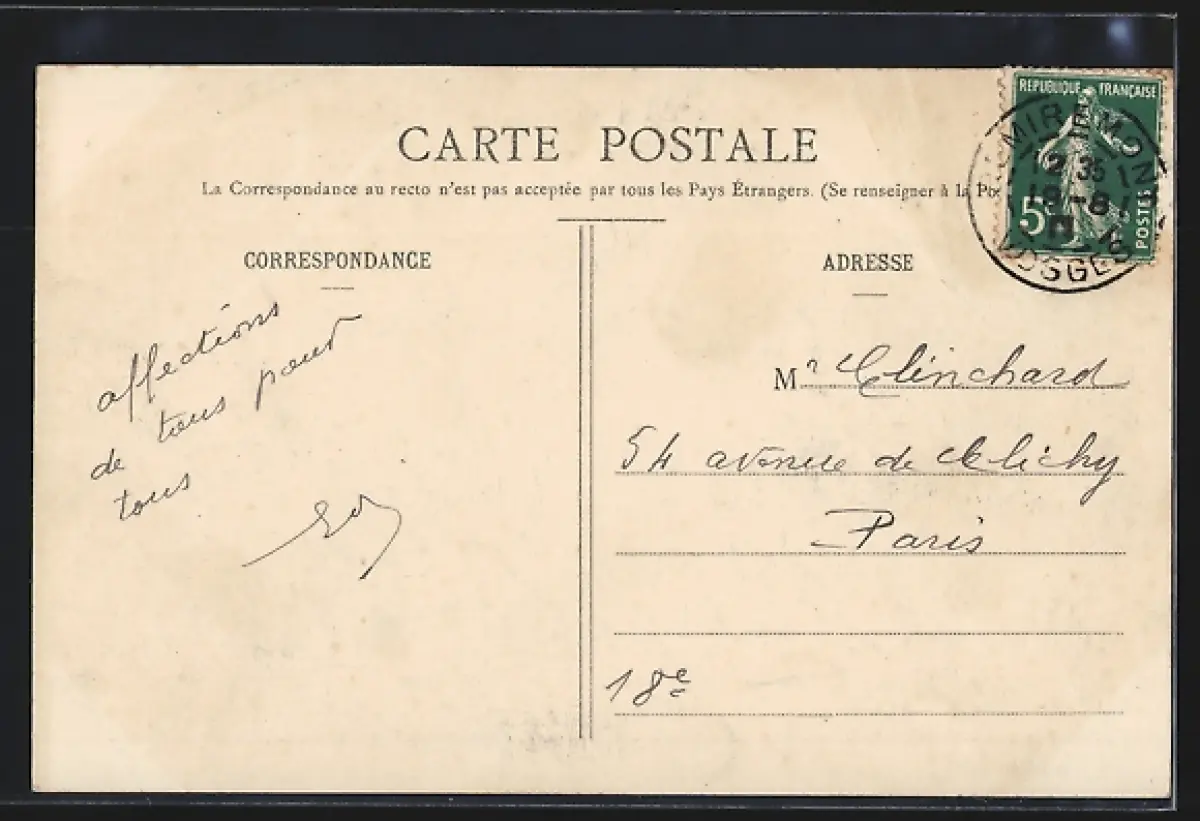 CARTE POSTALE
La Correspondance au recto n'est pas acceptée par tous les Pays Étrangers. (Se renseigner à la Po
REPUBLIQUE FRANÇAISE
5
POSTES
MIREMON
12 35
19-8
VOSGES
CORRESPONDANCE
affections
de tous pour
tous
ADRESSE
Mr Clinchard
54 avenue de Clichy
Paris
18e